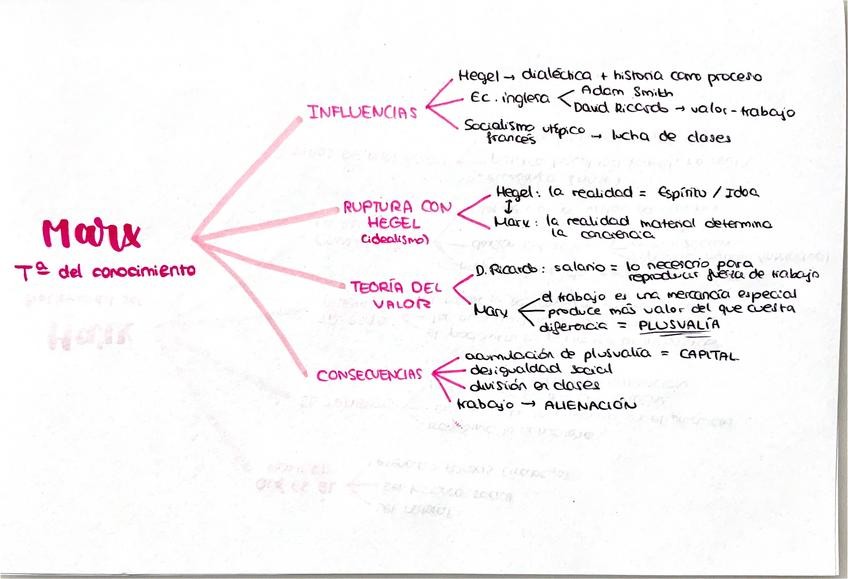 Marx
Tª del conocimiento
INFLUENCIAS
Hegel → dialéctica + historia como proceso
Ec. inglesa
Adam Smith
David Ricardo → valor-trabajo
Socialismo utópico
francés
→ lucha de clases
RUPTURA CON
HEGEL
(idealismo)
Hegel: la realidad = Espíritu / Idea
↕
Marx: la realidad material determina
la conciencia
TEORÍA DEL
VALOR
D. Ricardo: salario = lo necesario para
reproducir fuerza de trabajo
Marx
el trabajo es una mercancía especial
produce más valor del que cuesta
diferencia = PLUSVALÍA
CONSECUENCIAS
acumulación de plusvalía = CAPITAL
desigualdad social
división en clases
trabajo → ALIENACIÓN